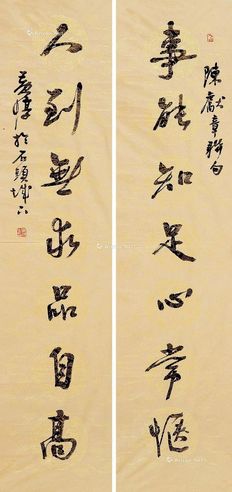 陳獻章聯句
事能知足心常愜
人到無求品自高
黃惇於石頭城下